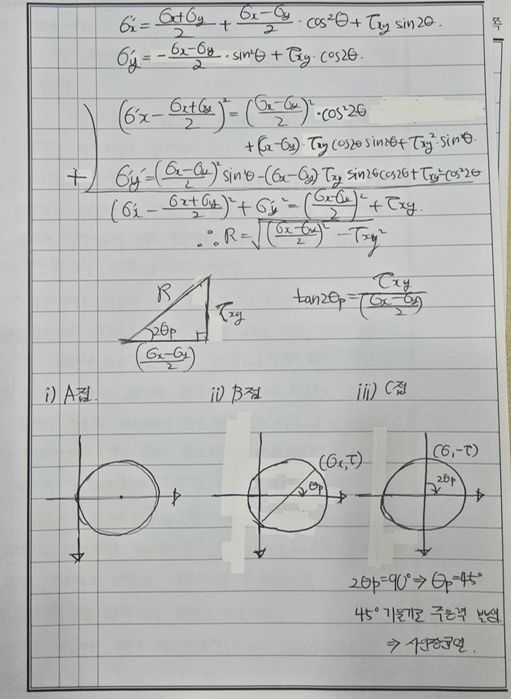 σx' = (σx+σy)/2 + (σx-σy)/2 · cos²θ + τxy sin2θ.
σy' = -(σx-σy)/2 · sin²θ + τxy · cos2θ.
(σ'x - (σx+σy)/2)² = ((σx-σy)/2)² · cos²2θ
+(σx-σy) · τxy cos2θ sin2θ + τxy² · sin²θ.
+) σy'² = ((σx-σy)/2)² sin²θ - (σx-σy) τxy sin2θ cos2θ + τxy² cos²2θ
(σx' - (σx+σy)/2)² + σy'² = ((σx-σy)/2)² + τxy.
∴ R = √(((σx-σy)/2)² - τxy²)
R
2θp
τxy
((σx-σy)/2)
tan2θp = τxy/((σx-σy)/2)
i) A점.
ii) B점
iii) C점
(σx,τ)
θp
(σ,-τ)
2θp
2θp=90° ⇒ θp=45°
45° 기울기로 주응력
⇒